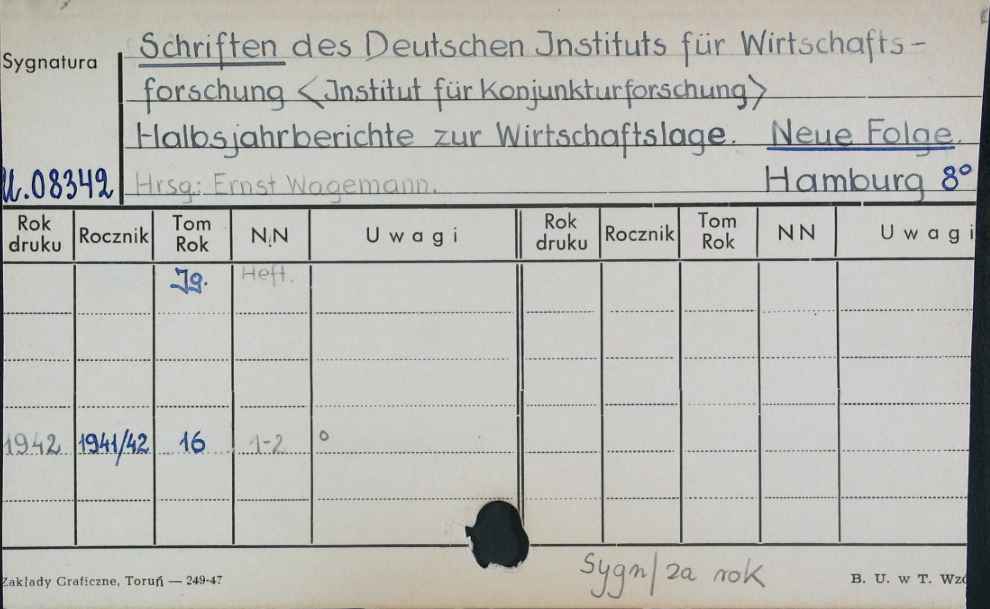 Schriften des Deutschen Instituts für Wirtschafts-
Sygnatura
forschung <Institut für Konjunkturforschung>
Halbsjahrberichte zur Wirtschaftslage. Neue Folge.
U.08342 Hrsg.: Ernst Wagemann. Hamburg 8°
Rok druku Rocznik Tom Rok N.N Uwagi Rok druku Rocznik Tom Rok NN Uwagi
Jg. Heft.
1942 1941/42 16 1-2 °
Sygn/za rok
Zakłady Graficzne, Toruń — 249-47 B. U. w T. Wzó